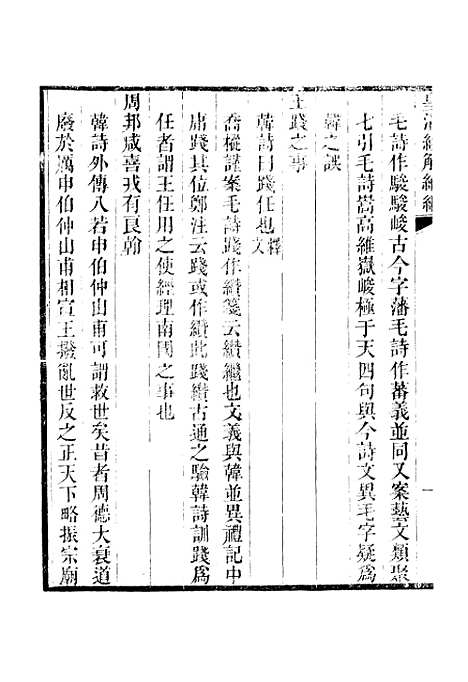 皇清經解續編
毛詩作駿駿峻古今字藩毛詩作蕃義並同又案藝文類聚
七引毛詩嵩高維嶽峻極于天四句與今詩文異毛字疑為
韓之誤
王踐之事
韓詩曰踐任也釋文
喬樅謹案毛詩踐作纘箋云纘繼也文義與韓並異禮記中
庸踐其位鄭注云踐或作纘此踐纘古通之驗韓詩訓踐為
任者謂王任用之使經理南國之事也
周邦咸喜戎有良翰
韓詩外傳八若申伯仲山甫可謂救世矣昔者周德大衰道
廢於厲申伯仲山甫相宣王撥亂世反之正天下略振宗廟